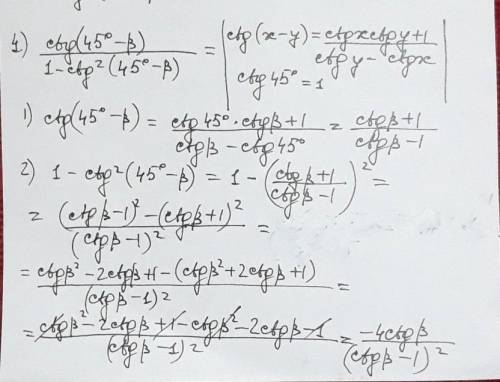 4) ctg(45°-β) / 1-ctg²(45°-β) = | ctg(x-y) = ctgx ctgy+1 / ctgy - ctgx
ctg 45° = 1 |
1) ctg(45°-β) = ctg45°·ctgβ+1 / ctgβ - ctg45° = ctgβ+1 / ctgβ-1
2) 1 - ctg²(45°-β) = 1 - (ctgβ+1 / ctgβ-1)² =
= (ctgβ-1)² - (ctgβ+1)² / (ctgβ-1)² =
= ctgβ² - 2ctgβ+1 - (ctgβ²+2ctgβ+1) / (ctgβ-1)² =
= ctgβ² - 2ctgβ+1 - ctgβ² - 2ctgβ - 1 / (ctgβ-1)² = -4ctgβ / (ctgβ-1)²